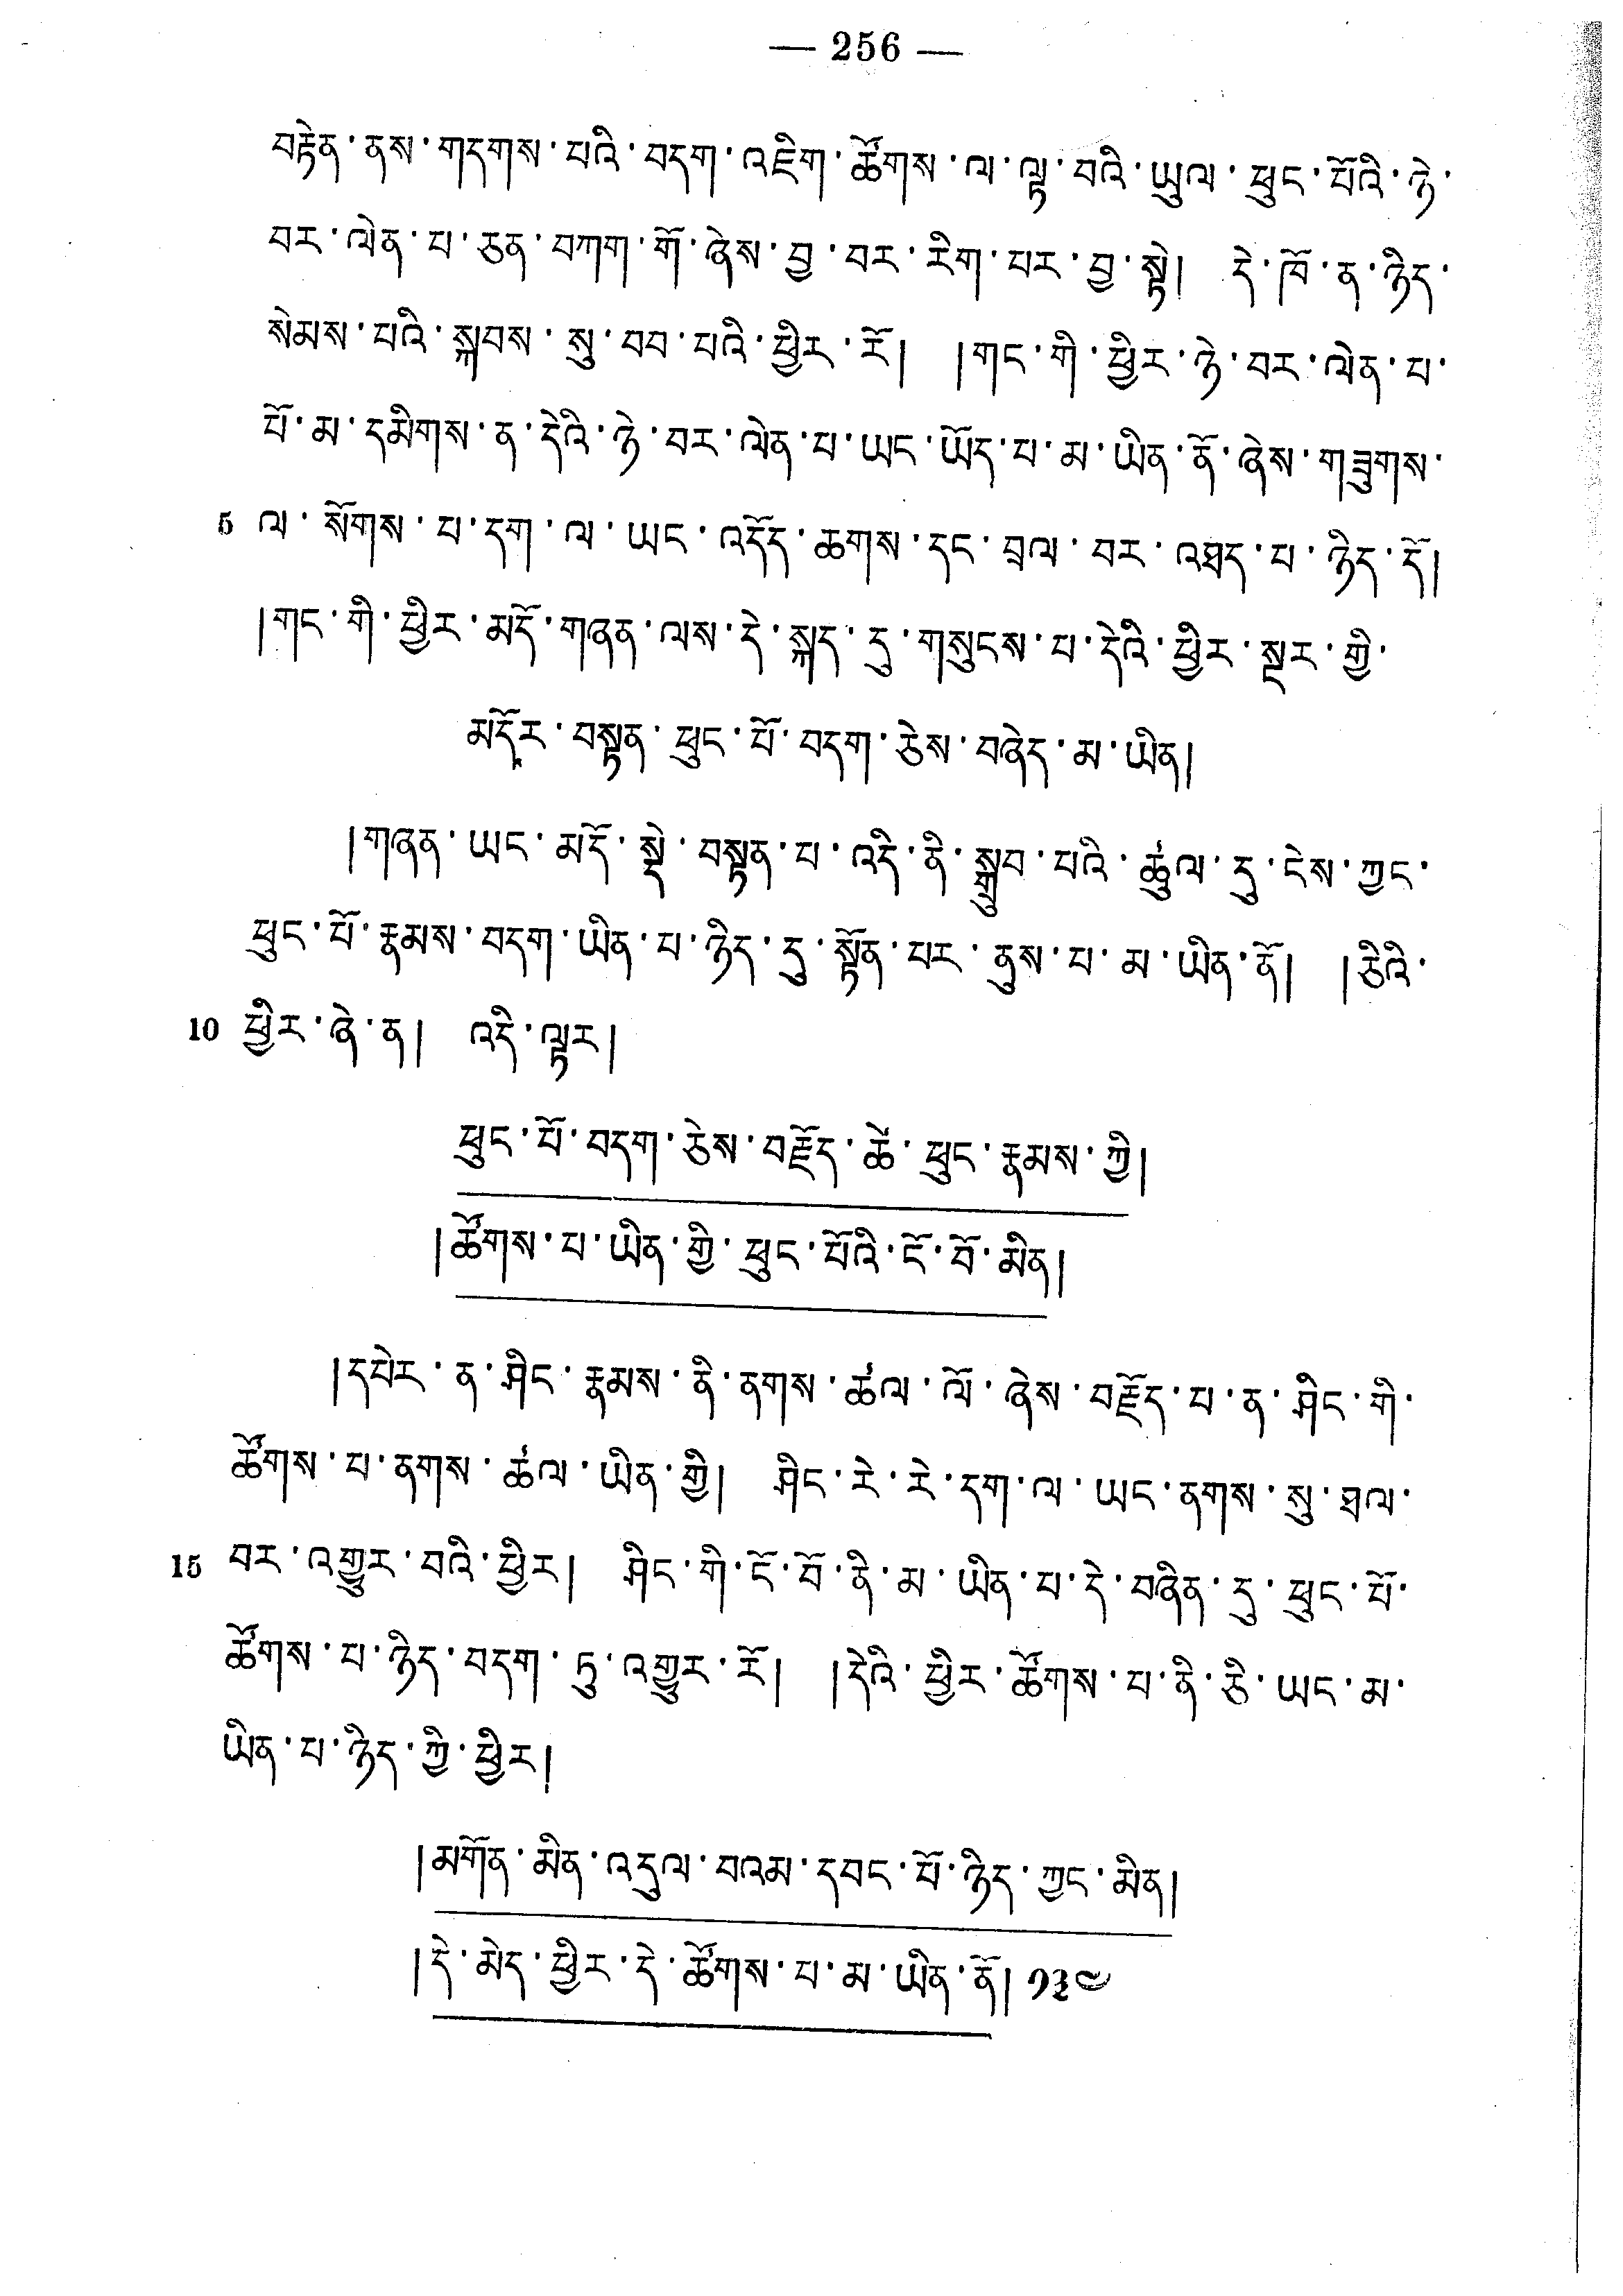 — 256 —
བརྟེན་ནས་གདགས་པའི་བདག་འཇིག་ཚོགས་ལ་ལྟ་བའི་ཡུལ་ཕུང་པོའི་ཉེ་
བར་ལེན་པ་ཅན་བཀག་གོ་ཞེས་བྱ་བར་རིག་པར་བྱ་སྟེ། དེ་ཁོ་ན་ཉིད་
སེམས་པའི་སྐབས་སུ་བབ་པའི་ཕྱིར་རོ། །གང་གི་ཕྱིར་ཉེ་བར་ལེན་པ་
པོ་མ་དམིགས་ན་དེའི་ཉེ་བར་ལེན་པ་ཡང་ཡོད་པ་མ་ཡིན་ནོ་ཞེས་གཟུགས་
5 ལ་སོགས་པ་དག་ལ་ཡང་འདོད་ཆགས་དང་བྲལ་བར་འཐད་པ་ཉིད་དོ།
།གང་གི་ཕྱིར་མདོ་གཞན་ལས་དེ་སྐད་དུ་གསུངས་པ་དེའི་ཕྱིར་སྔར་གྱི་
མདོར་བསྟན་ཕུང་པོ་བདག་ཅེས་བཞེད་མ་ཡིན།
།གཞན་ཡང་མདོ་སྡེ་བསྟན་པ་འདི་ནི་སྒྲུབ་པའི་ཚུལ་དུ་ངེས་ཀྱང་
ཕུང་པོ་རྣམས་བདག་ཡིན་པ་ཉིད་དུ་སྟོན་པར་ནུས་པ་མ་ཡིན་ནོ། །ཅིའི་
10 ཕྱིར་ཞེ་ན། འདི་ལྟར།
ཕུང་པོ་བདག་ཅེས་བརྗོད་ཚེ་ཕུང་རྣམས་ཀྱི།
།ཚོགས་པ་ཡིན་གྱི་ཕུང་པོའི་ངོ་བོ་མིན།
།དཔེར་ན་ཤིང་རྣམས་ནི་ནགས་ཚལ་ལོ་ཞེས་བརྗོད་པ་ན་ཤིང་གི་
ཚོགས་པ་ནགས་ཚལ་ཡིན་གྱི། ཤིང་རེ་རེ་དག་ལ་ཡང་ནགས་སུ་ཐལ་
15 བར་འགྱུར་བའི་ཕྱིར། ཤིང་གི་ངོ་བོ་ནི་མ་ཡིན་པ་དེ་བཞིན་དུ་ཕུང་པོ་
ཚོགས་པ་ཉིད་བདག་ཏུ་འགྱུར་རོ། །དེའི་ཕྱིར་ཚོགས་པ་ནི་ཅི་ཡང་མ་
ཡིན་པ་ཉིད་ཀྱི་ཕྱིར།
།མགོན་མིན་འདུལ་བའམ་དབང་པོ་ཉིད་ཀྱང་མིན།
།དེ་མེད་ཕྱིར་དེ་ཚོགས་པ་མ་ཡིན་ནོ། ༡༣༤